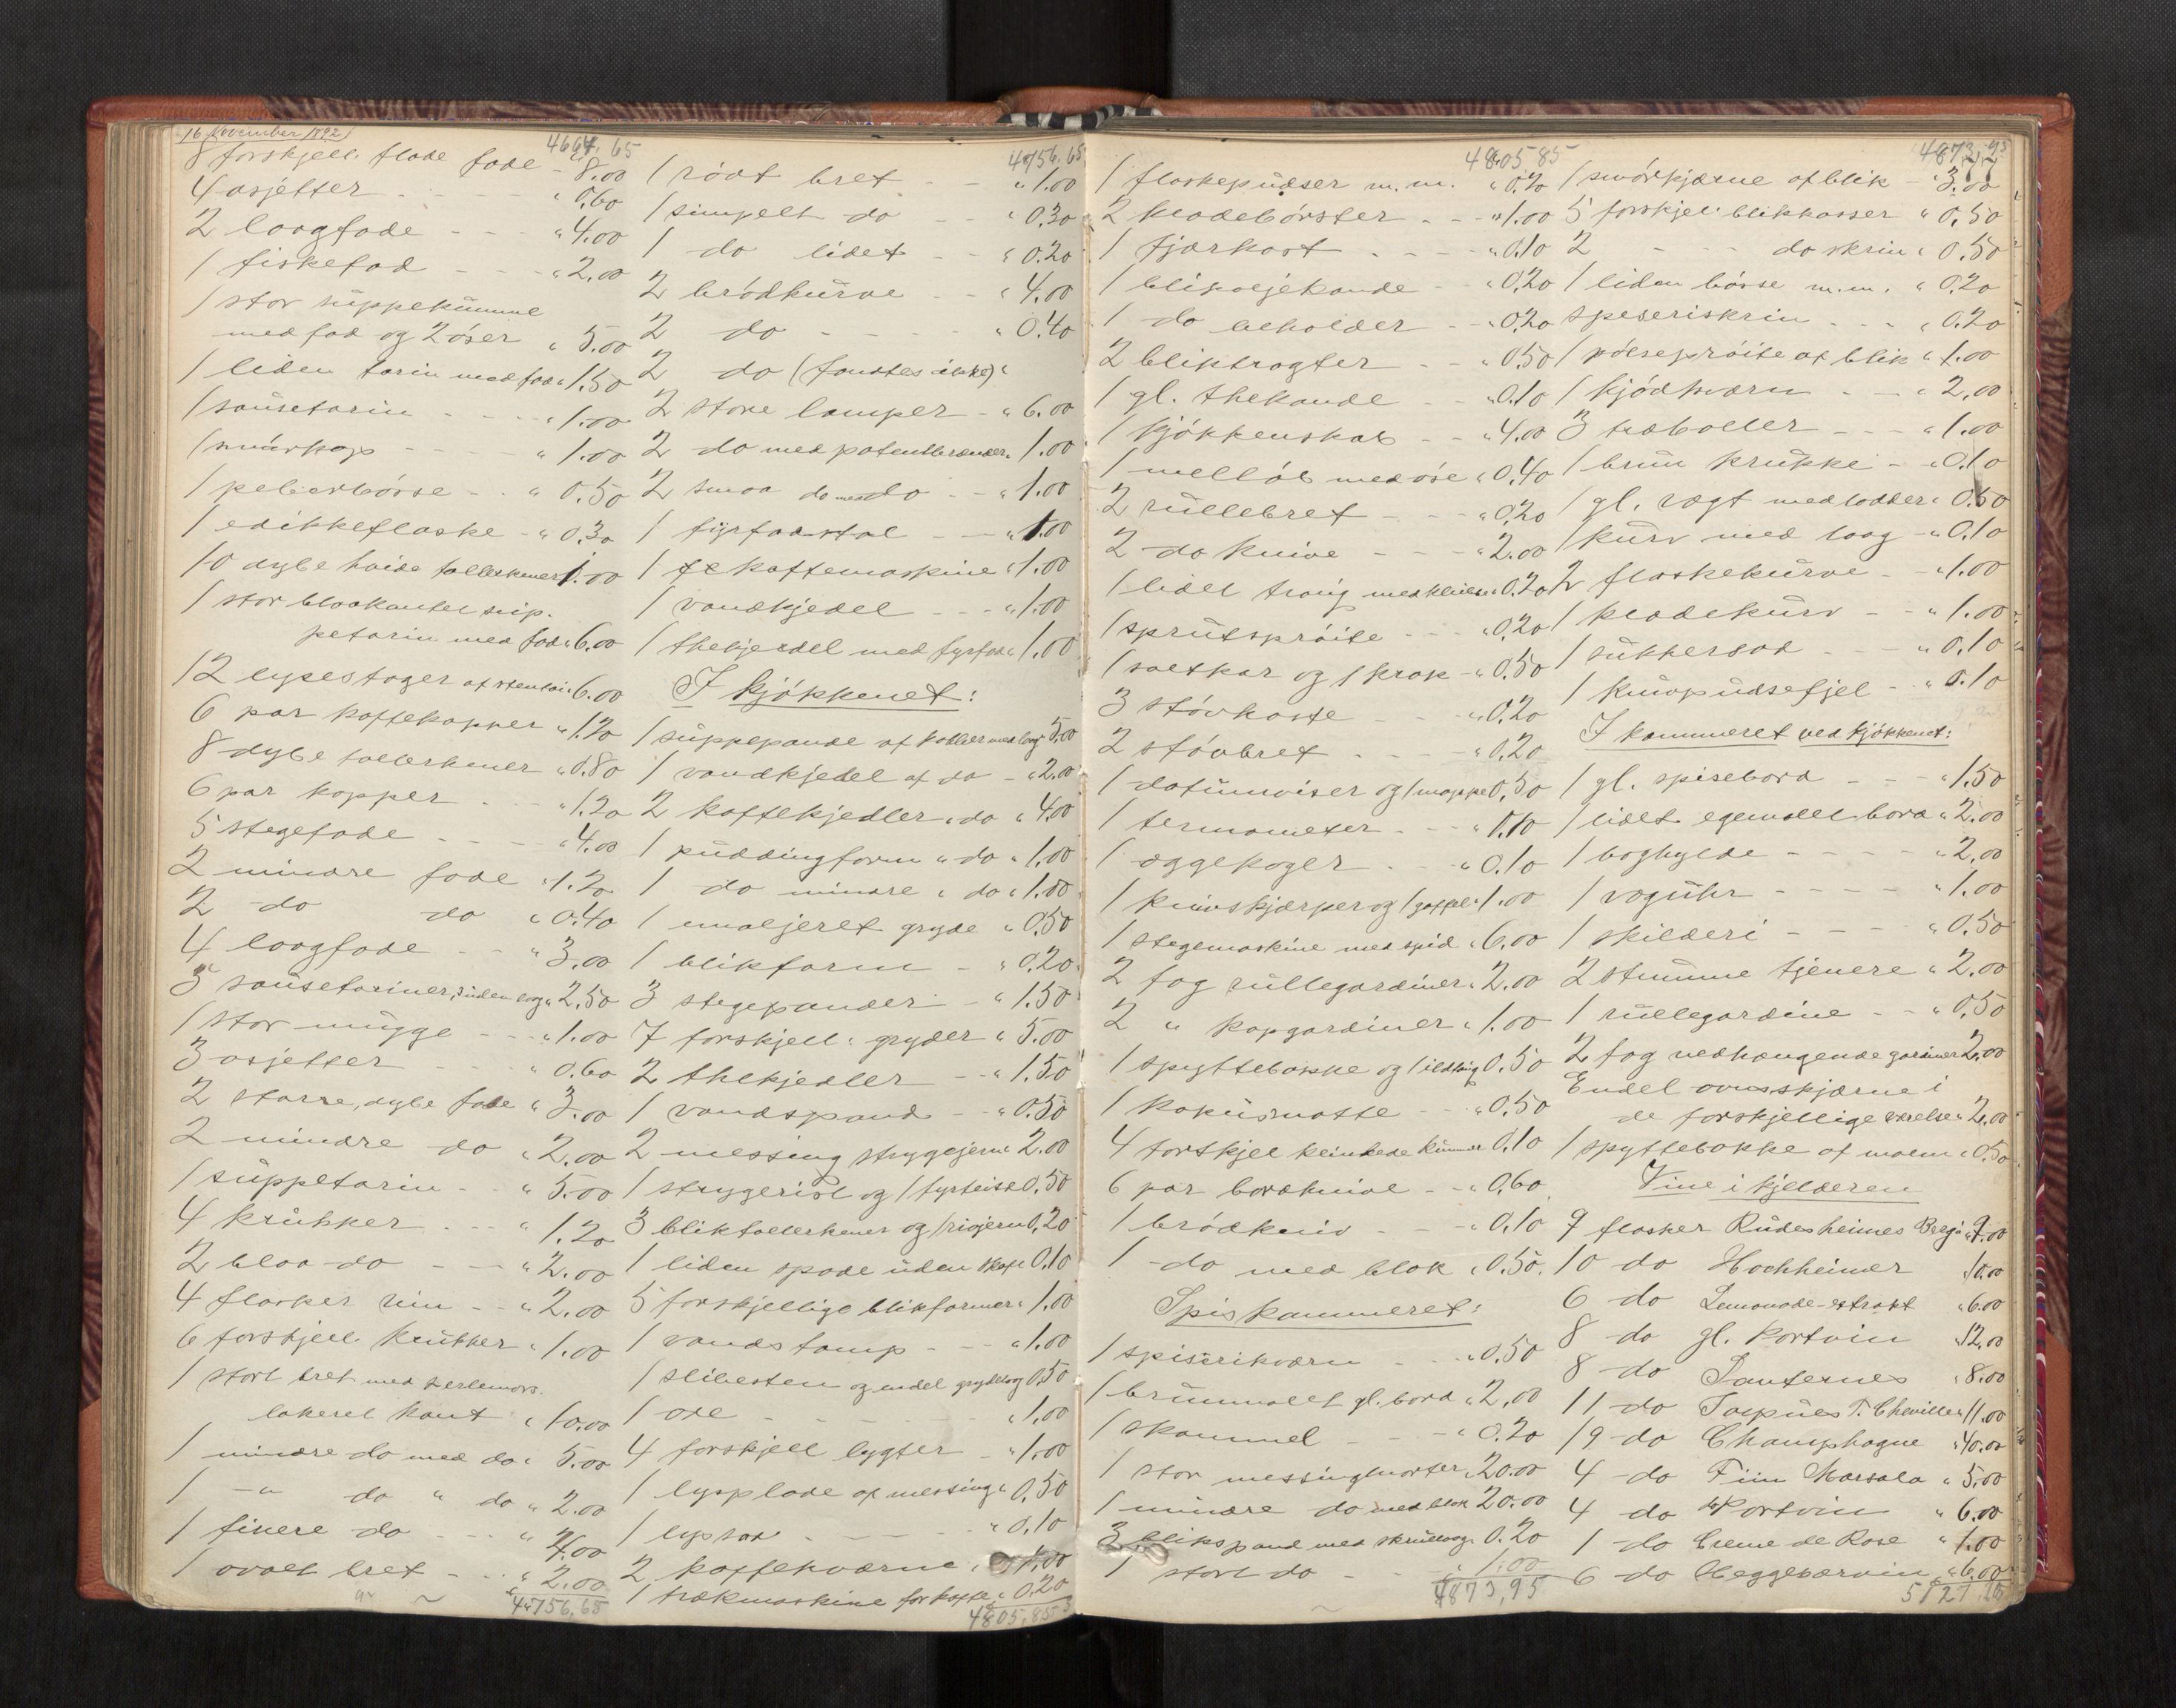 16 November 1892
4664.65
8 forskjell. flade fade - 8.00
4 asjetter - - - " 0.60
2 laagfade - - - " 4.00
1 fiskefad - - - " 2.00
1 stor süppekümme
med fad og 2 öser " 5.00
1 liden tarin med fad " 1.50
1 saüsetarin - - - " 1.00
1 smörkop - - - " 1.00
1 peberbösse - - " 0.50
1 edikkeflaske - " 0.30
10 dybe hvide tallerkener 1.00
1 stor blaakantet süp-
petarin med fad " 6.00
12 lysestager af stentöi " 6.00
6 par kaffekopper " 1.20
8 dybe tallerkener " 0.80
6 par kopper - - " 1.20
5 stegefade - - - " 4.00
2 mindre fade " 1.20
2 do do " 0.40
4 laagfade - - " 3.00
5 saüsetariner, üden laag " 2.50
1 stor mügge - - " 1.00
3 asjetter - - - " 0.60
2 større, dybe fade " 3.00
2 mindre do " 2.00
1 süppetarin - - " 5.00
4 krükker - - - " 1.20
2 blaa do - - - " 2.00
4 flasker vin - - " 2.00
6 forskjell. krükker " 1.00
1 stort bret med perlemors.
lakeret kant " 10.00
1 mindre do med do " 5.00
1 -" do " do " 2.00
1 finere do - - - " 4.00
1 ovalt bret - - " 2.00
4756.65
4756.65
1 rödt bret - - " 1.00
1 simpelt do - - " 0.30
1 do lidet - - " 0.20
2 brödkürve - - " 4.00
2 do - - - - " 0.40
2 do (fandtes ikke) "
2 store lamper - " 6.00
2 do med patentbrænder " 1.00
2 smaa do med do - - " 1.00
1 fyrfadstol - - - " 1.00
1 kaffemaskine " 1.00
1 vandkjedel - - - " 1.00
1 thekjedel med fyrfad " 1.00
I kjökkenet:
1 süppepande af kobber med laag 5.00
1 vandkjedel af do - " 2.00
2 kaffekjedler " do " 4.00
1 püddingform " do " 1.00
1 do mindre " do " 1.00
1 emaljeret gryde " 0.50
1 blikform - " 0.20
3 stegepander - " 1.50
7 forskjell. gryder " 5.00
2 thekjedler - - " 1.50
1 vandspand - - " 0.50
2 messing strygejern " 2.00
1 strygerist og 1 fyrfeist 0.50
3 bliktallerkener og 1 rivjern 0.20
1 liden spade üden skaft 0.10
5 forskjellige blikformer " 1.00
1 vandstamp - - " 1.00
1 slibesten og endel grydelaag 0.50
1 öxe - - - - " 1.00
4 forskjell lygter - " 1.00
1 lysplade af messing " 0.50
1 lyssax - - - - " 0.10
2 kaffekværne " 1.00
1 trækmaskine for kaffe " 0.20
4805,85
4805 85
1 flaskepüdser m.m. " 0.20
2 klædebörster - - " 1.00
1 fjærkost - - - - " 0.10
1 blikoljekande - - " 0.20
1 do beholder - - " 0.20
2 bliktragter - - " 0.50
1 gl. thekande - - " 0.10
1 kjökkenskab - - " 4.00
1 mellöb med öse " 0.40
2 rüllebret - - - " 0.20
2 do knive - - - " 2.00
1 lidet traüg med " 0.20
1 sprütspröite - - " 0.20
1 saltkar og 1 krak - " 0.50
3 stövkoste - - " 0.20
2 stövbret - - - " 0.20
1 datümviser og 1 mappe 0.50
1 termometer - - - " 0.10
1 æggekoger - - " 0.10
1 knivskjærper og 1 gaffel " 1.00
1 stegemaskine med spid " 6.00
2 fag rüllegardiner " 2.00
2 " kapgardiner " 1.00
1 spyttebakke og 1 ildtang 0.50
1 koküsmatte - - " 0.50
4 forskjel klinkede kümmer 0.10
6 par bordknive - - " 0.60
1 brödkniv - - - " 0.10
1 do med blok " 0.50
Spiskammeret:
1 spiserikværn - - " 0.50
1 brünmalet gl. bord " 2.00
1 skammel - - - " 0.20
1 stor messingmorter " 20.00
1 mindre do med blok 20.00
3 blikspand med skrülaag " 0.20
1 stort do - - " 1.00
4873,95
4873,95
77
1 smörkjærne af blik - " 3.00
5 forskjel. blikkasser " 0.50
2 - - - do skrin " 0.50
1 liden bösse m.m. " 0.20
speseriskrin - - - " 0.20
1 pölsespröite af blik " 1.00
1 kjödkværn - - " 2.00
3 træboller - - - " 1.00
1 brün krükke - " 0.10
1 gl. vægt med lodder " 0.50
1 kürv med laag - " 0.10
2 flaskekürve - - " 1.00
1 klædekürv - - " 1.00
1 sükkersax - - - " 0.10
1 knivpüdsefjel - " 0.10
I kammeret ved kjökkenet:
1 gl. spisebord - - - " 1.50
1 lidet egemalet bord " 2.00
1 boghylde - - - - " 2.00
1 vægühr - - - - " 1.00
1 skilderi - - - - " 0.50
2 stümme tjenere " 2.00
1 rüllegardine - - " 0.50
2 fag nedhængende gardiner 2.00
Endel ovnsskjærme i
de forskjellige værelser 2.00
1 spyttebakke af malm " 0.50
Vine i kjelderen
9 flasker Rüdesheimer Berg " 9.00
10 do Hochheimer " 10.00
6 do Lemonade-extrakt " 6.00
8 do gl. Portvin " 12.00
8 do Sauternes " 8.00
11 do T. Cheville " 11.00
19 do Champhagne " 40.00
4 do Fiin Marsala " 5.00
4 do Portvin " 6.00
1 do Creme de Rose " 1.00
6 do Heggebærvin " 6.00
5121.15